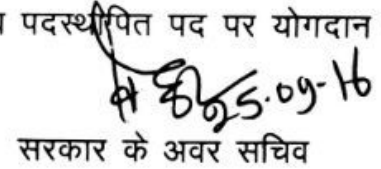 पदस्थापित पद पर योगदान
25.09-16
सरकार के अवर सचिव